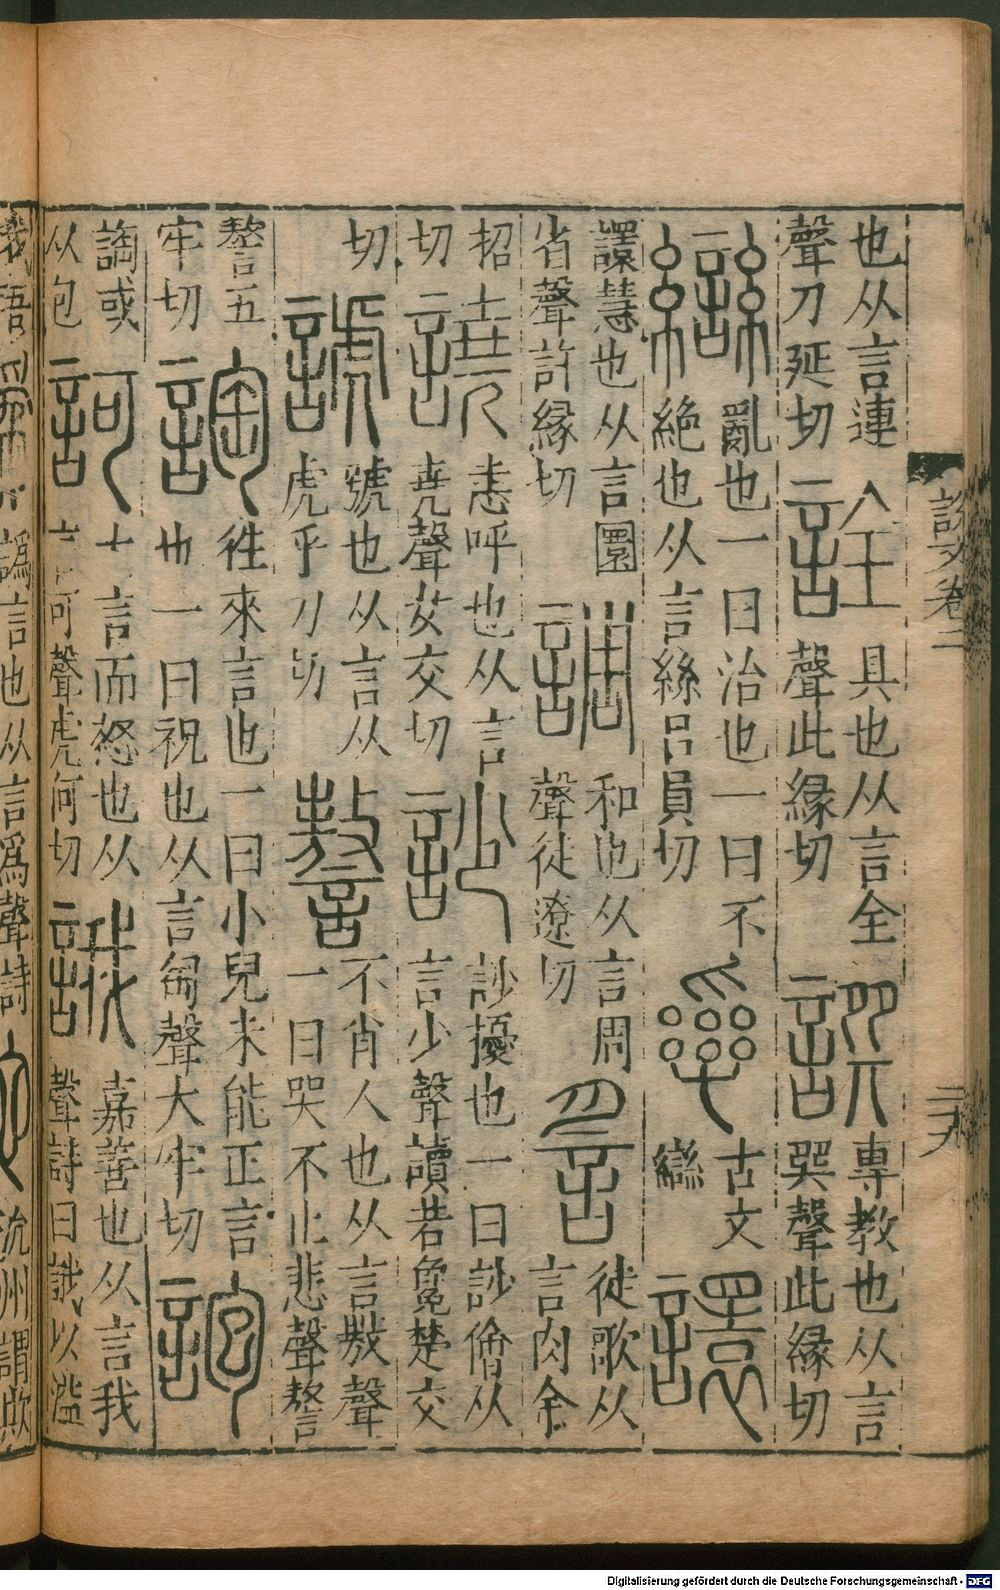 說文卷二
二九
也从言連聲刀延切
詮
具也从言全聲此緣切
譔
専教也从言巺聲此緣切
䜌
亂也一曰治也一曰不絶也从言絲呂員切
古文䜌
譞
譞慧也从言圜省聲許緣切
調
和也从言周聲徒遼切
䚻
徒歌从言肉余招切
譊
恚呼也从言堯聲女交切
訬
訬擾也一曰訬儈从言少聲讀若毚楚交切
諕
號也从言从虎乎刀切
謷
不肖人也从言敖聲一曰哭不止悲聲謷謷五牢切
詢
徃來言也一曰小兒未能正言也一曰祝也从言匋聲大牢切
詾或从包
訶
大言而怒也从言可聲虎何切
誐
嘉善也从言我聲詩曰誐以溢
譌言也从言爲聲詩
沇州謂欺
Digitalisierung gefördert durch die Deutsche Forschungsgemeinschaft - DFG